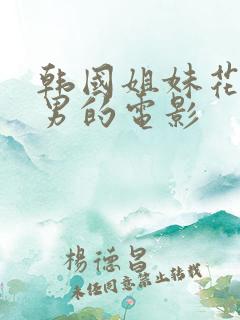 韩國姐妹花
男的电影
楊德昌
未经同意禁止转载